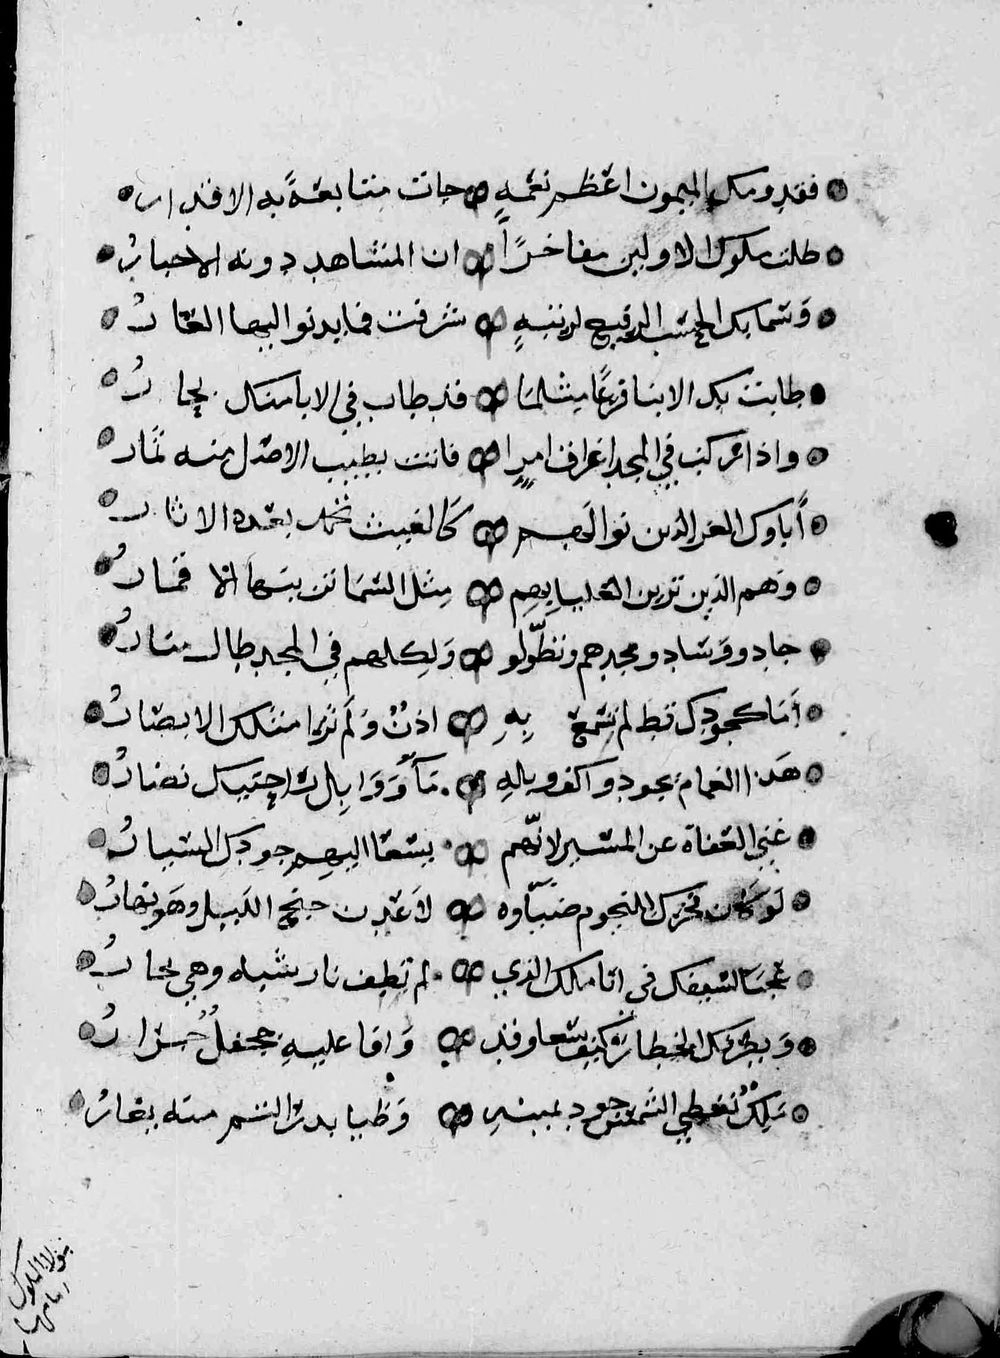 فقدومك الميمون اعظم نعمةٍ جات متتابعةً به الاقدار
طلت ملوك الاولين مفاخرًا ان المشاهد دونه الاخبارُ
وَسَما بك الحسَب الرفيع لرتبةٍ شرفت فما يدنوا اليها العَارُ
طابت بك الابنا فرعًا مثلمَا قد طاب في الابا منك نجارُ
واذا مركب في المجد اعراف امرءٍ فانت بطيب الاصل منه ثمار
أباوك الغر الذين نوالَهم كَالغيث تحمد بعده الاثار
وَهم الذين تزين العليا بهم مِثل السّمَا تزينها الاقمارُ
جادو وَسَادو مجدهم وتطوّلو وَلكلهم في المجد طال منارُ
أمَا كجودك قط لم تسمَع بِهِ اذنٌ وَلَم ترا مثلك الابصَارُ
هَذا الغمام يجود واكف وبلهِ مَآءً وَوَابِل راحتيك نضارُ
غني العفاة عن المسير لانّهم يسعَا اليهم جودك السيارُ
لَو كان فخرك للنجوم ضيآوه لاَغتدت جنح الليل وهو نهارُ
عجبَا لسيفك في اناملك الذي لم تطف نار شباه وهي بحارُ
وَبطرفك الخطار كيف سَعا وقد وَافا عليهِ جحفلٌ جُرّارُ
مَلِكٌ تغطي الشمس جود يمينهِ وَظيا بدر التم منه يغارُ
بيولا الملوك